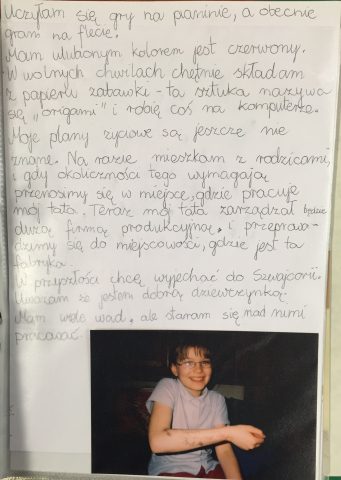 Uczyłam się gry na pianinie, a obecnie
gram na flecie.
Mam ulubionym kolorem jest czerwony.
W wolnych chwilach chętnie składam
z papieru zabawki - ta sztuka nazywa
się „origami" i robię coś na komputerze.
Moje plany życiowe są jeszcze nie
znane. Na razie mieszkam z rodzicami,
i gdy okoliczności tego wymagają
przenosimy się w miejsce, gdzie pracuje
mój tata. Teraz mój tata zarządzał będzie
dużą firmą produkcyjną, i przeprowa-
dzimy się do miejscowości, gdzie jest ta
fabryka.
W przyszłości chcę wyjechać do Szwajcarii.
Uważam że jestem dobrą dziewczynką.
Mam wiele wad, ale staram się nad nimi
pracować.